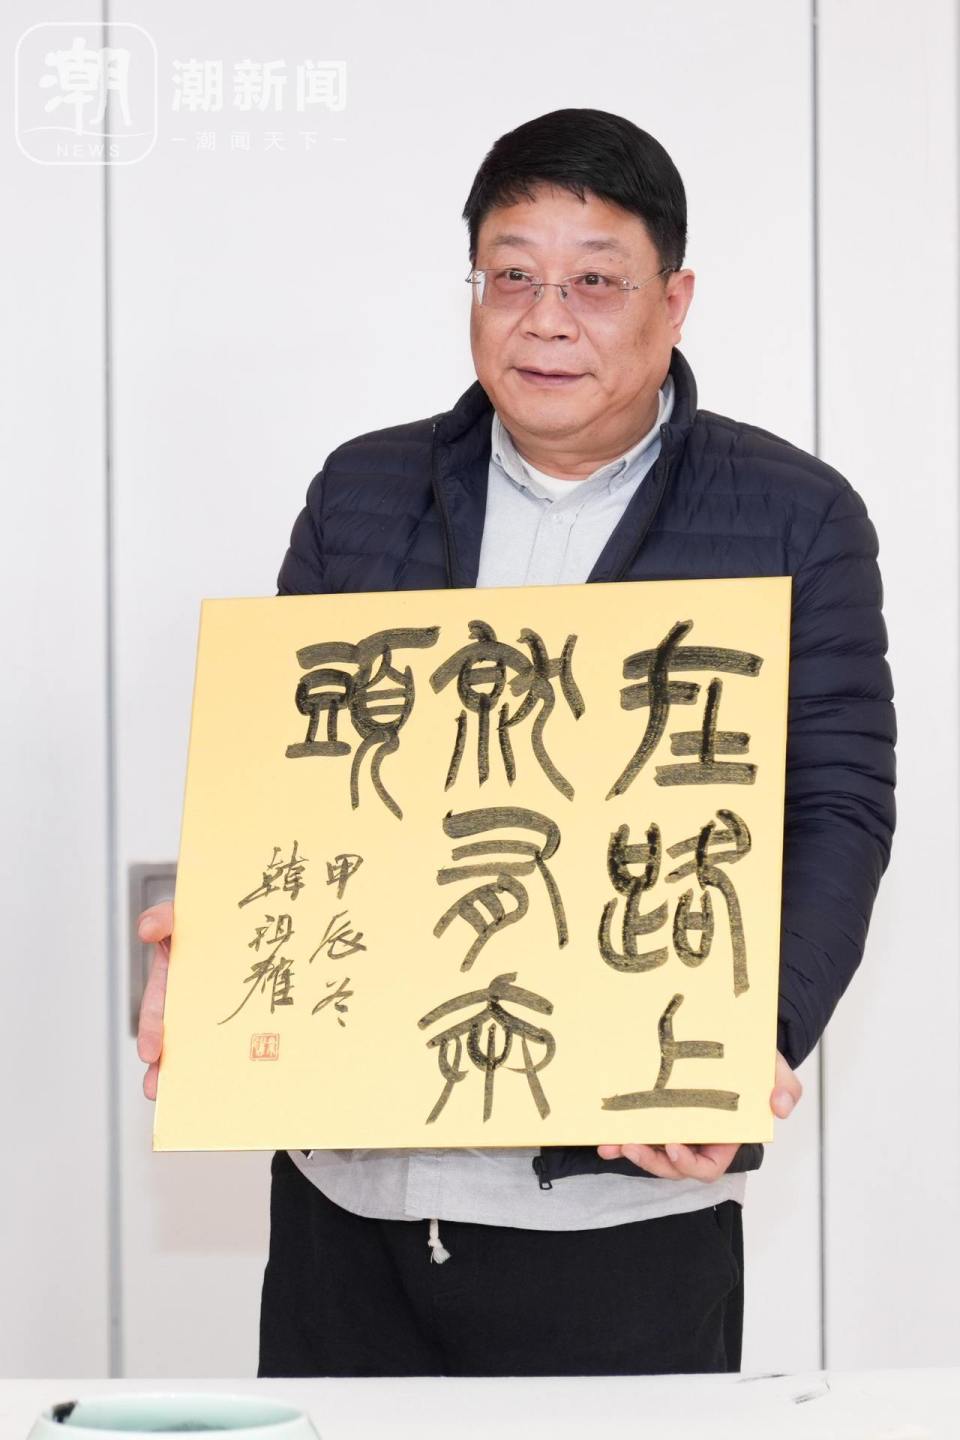 潮
NEWS
潮新闻
潮闻天下
在路上
就有奔
頭
甲辰冬
韓祖耀